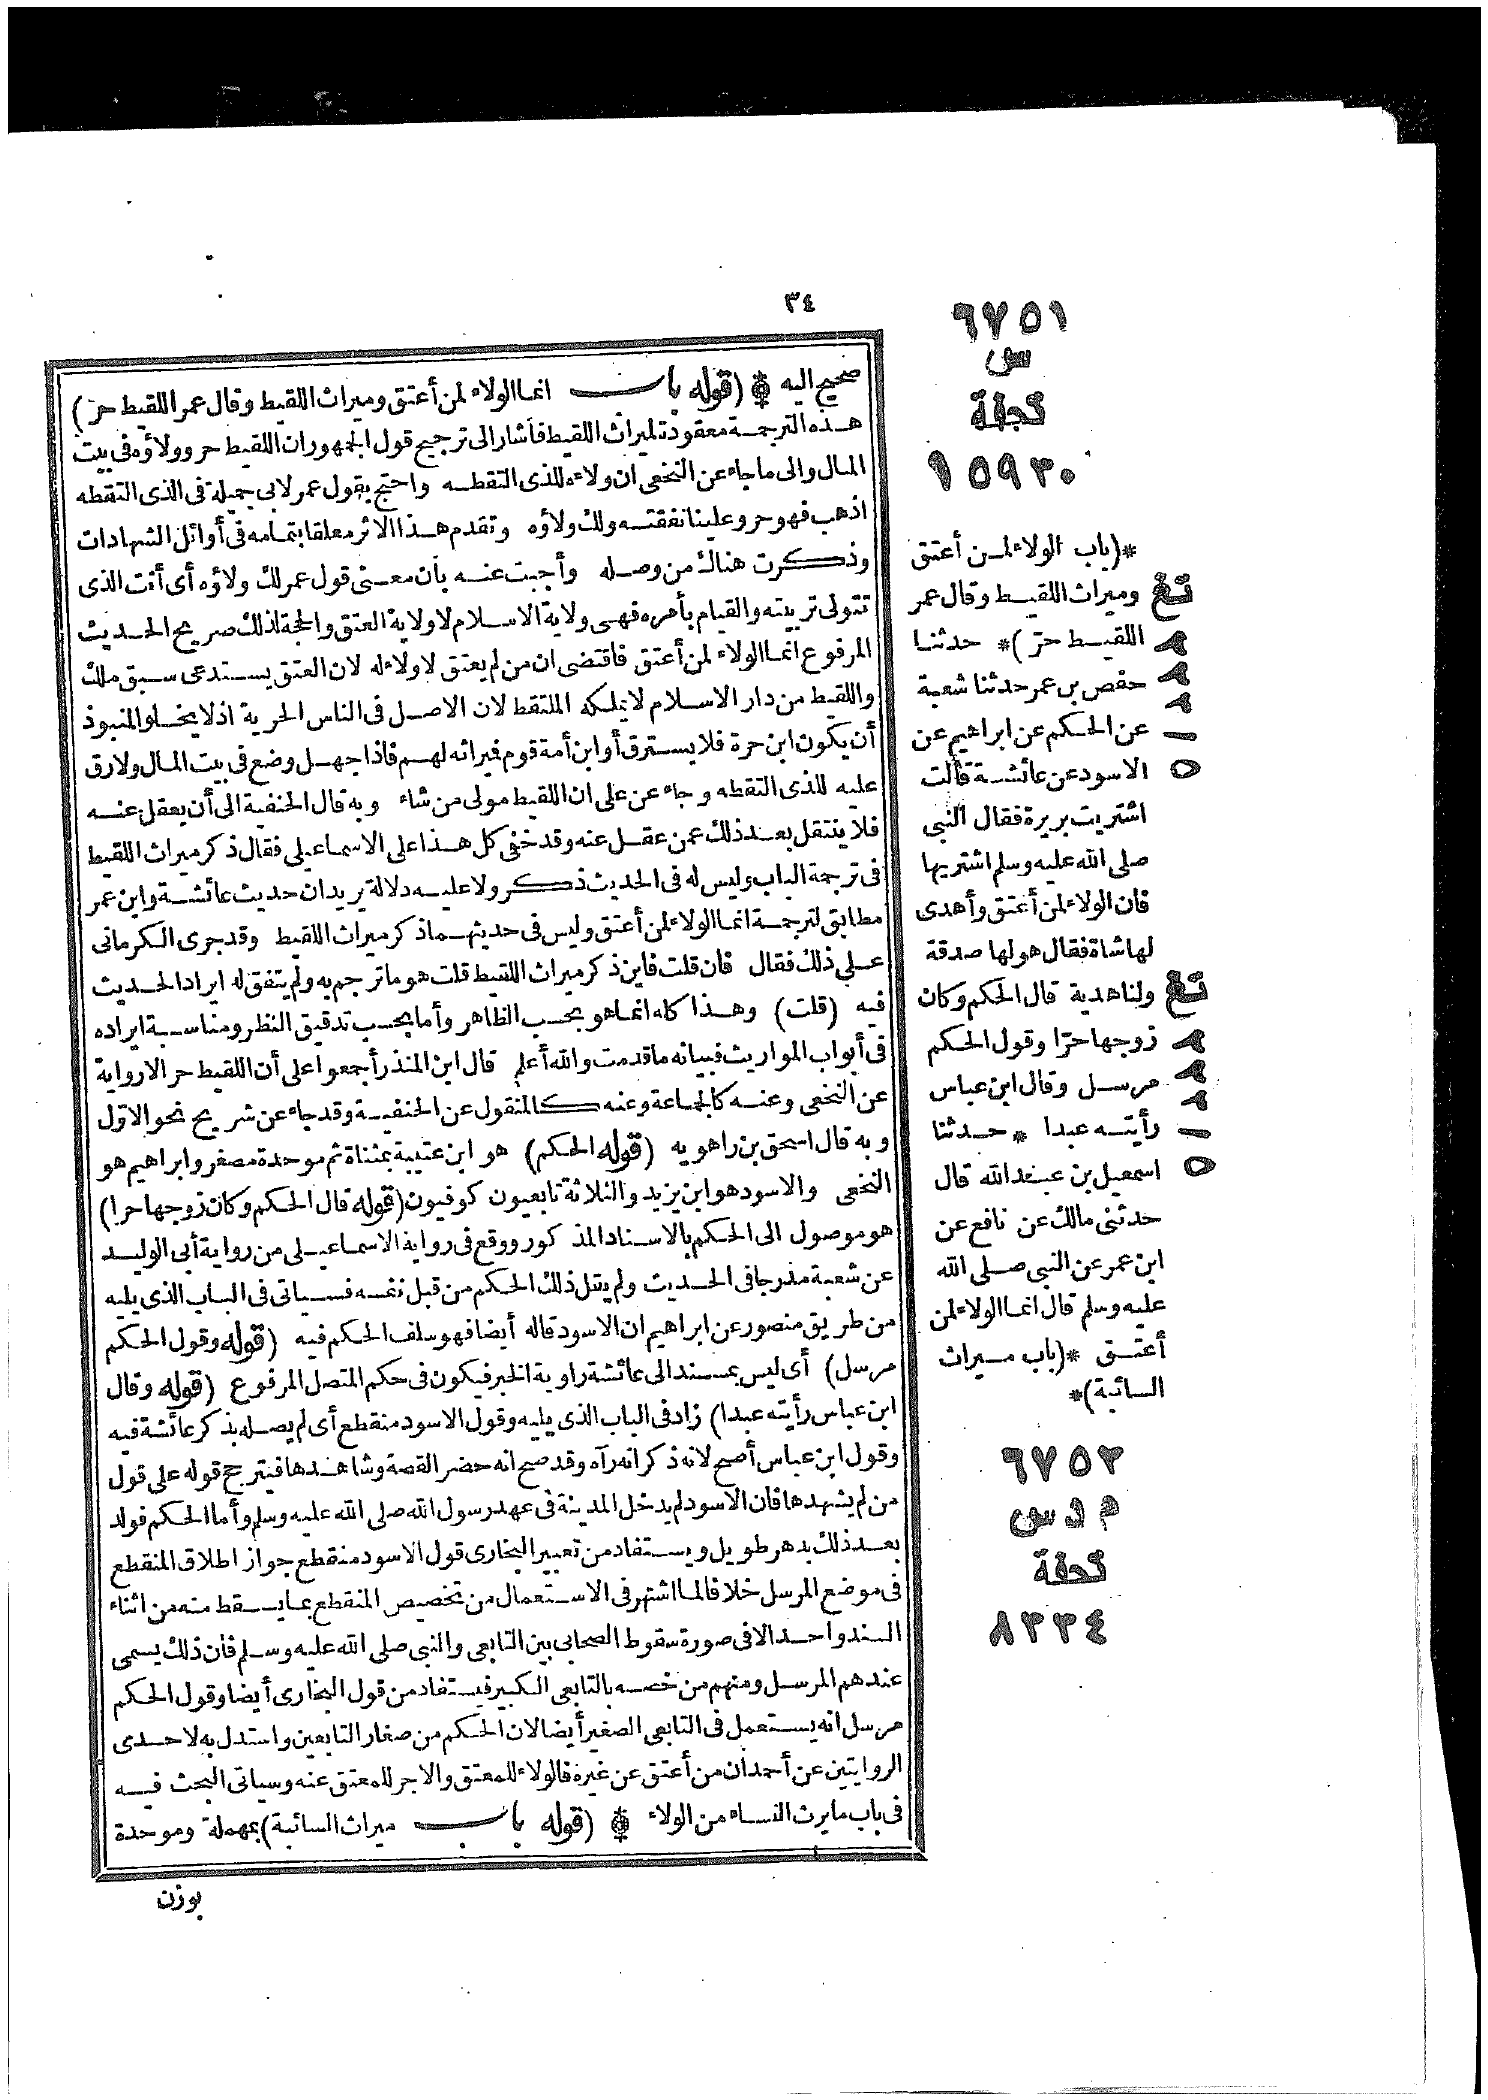 ٣٤
صحيح اليه * (قوله باب انما الولاء لمن أعتق وميراث اللقيط وقال عمر اللقيط حر)
هذه الترجمة معقودة لميراث اللقيط فأشار الى ترجيح قول الجمهور ان اللقيط حر وولاؤه في بيت
المال والى ما جاء عن النخعى ان ولاءه للذى التقطه واحتج بقول عمر لابى جميلة فى الذى التقطه
اذهب فهو حر وعلينا نفقته ولك ولاؤه وتقدم هذا الاثر معلقا بتمامه فى أوائل الشهادات
وذكرت هناك من وصله وأجبت عنه بان معنى قول عمر لك ولاؤه أى أنت الذى
تتولى تربيته والقيام بأمره فهى ولاية الاسلام لا ولاية العتق والحجة لذلك صريح الحديث
المرفوع انما الولاء لمن أعتق فاقتضى ان من لم يعتق لا ولاء له لان العتق يستدعى سبق ملك
واللقيط من دار الاسلام لا يملكه الملتقط لان الاصل فى الناس الحرية اذ لا يخلو المنبوذ
أن يكون ابن حرة فلا يسترق أو ابن أمة قوم فيراثه لهم فاذا جهل وضع فى بيت المال ولا رق
عليه للذى التقطه وجاء عن على ان اللقيط مولى من شاء وبه قال الحنفية الى أن يعقل عنه
فلا ينتقل بعد ذلك عمن عقل عنه وقد خفى كل هذا على الاسماعيلى فقال ذكر ميراث اللقيط
فى ترجمة الباب وليس له فى الحديث ذكر ولا عليه دلالة يريد ان حديث عائشة وابن عمر
مطابق لترجمة انما الولاء لمن أعتق وليس فى حديثهما ذكر ميراث اللقيط وقد جرى الكرمانى
على ذلك فقال فان قلت فاين ذكر ميراث اللقيط قلت هو ما ترجم به ولم يتفق له ايراد الحديث
فيه (قلت) وهذا كله انما هو بحسب الظاهر وأما بحسب تدقيق النظر ومناسبة ايراده
فى أبواب المواريث فبيانه ما قدمت والله أعلم قال ابن المنذر أجمعوا على أن اللقيط حر الا رواية
عن النخعى وعنه كالجماعة وعنه كالمنقول عن الحنفية وقد جاء عن شريح نحو الاول
وبه قال اسحق بن راهويه (قوله الحكم) هو ابن عتيبة بمثناة ثم موحدة مصغر وابراهيم هو
النخعى والاسود هو ابن يزيد والثلاثة تابعيون كوفيون (قوله قال الحكم وكان زوجها حرا)
هو موصول الى الحكم بالاسناد المذكور ووقع فى رواية الاسماعيلى من رواية أبى الوليد
عن شعبة مدرجا فى الحديث ولم يقل ذلك الحكم من قبل نفسه فسيأتى فى الباب الذى يليه
من طريق منصور عن ابراهيم ان الاسود قاله أيضا فهو سلف الحكم فيه (قوله وقول الحكم
مرسل) أى ليس بمسند الى عائشة راوية الخبر فيكون فى حكم المتصل المرفوع (قوله وقال
ابن عباس رأيته عبدا) زاد فى الباب الذى يليه وقول الاسود منقطع أى لم يصله بذكر عائشة فيه
وقول ابن عباس أصح لانه ذكر انه رآه وقد صح انه حضر القصة وشاهدها فيترجح قوله على قول
من لم يشهدها فان الاسود لم يدخل المدينة فى عهد رسول الله صلى الله عليه وسلم وأما الحكم فولد
بعد ذلك بدهر طويل ويستفاد من تعبير البخارى قول الاسود منقطع جواز اطلاق المنقطع
فى موضع المرسل خلافا لما اشتهر فى الاستعمال من تخصيص المنقطع بما يسقط منه من اثناء
السند واحد الا فى صورة سقوط الصحابى بين التابعى والنبى صلى الله عليه وسلم فان ذلك يسمى
عندهم المرسل ومنهم من خصه بالتابعى الكبير فيستفاد من قول البخارى أيضا وقول الحكم
مرسل انه يستعمل فى التابعى الصغير أيضا لان الحكم من صغار التابعين واستدل به لاحدى
الروايتين عن أحمد ان من أعتق عن غيره فالولاء للمعتق والاجر للمعتق عنه وسيأتى البحث فيه
فى باب ما يرث النساء من الولاء * (قوله باب ميراث السائبة) بمهملة وموحدة
بوزن
٦٧٥١
س
تحفة
١٥٩٣٠
*(باب الولاء لمن أعتق
وميراث اللقيط وقال عمر
اللقيط حر)* حدثنا
حفص بن عمر حدثنا شعبة
عن الحكم عن ابراهيم عن
الاسود عن عائشة قالت
اشتريت بريرة فقال النبى
صلى الله عليه وسلم اشتريها
فان الولاء لمن أعتق وأهدى
لها شاة فقال هو لها صدقة
ولنا هدية قال الحكم وكان
زوجها حرا وقول الحكم
مرسل وقال ابن عباس
رأيته عبدا * حدثنا
اسمعيل بن عبد الله قال
حدثنى مالك عن نافع عن
ابن عمر عن النبى صلى الله
عليه وسلم قال انما الولاء لمن
أعتق *(باب ميراث
السائبة)*
تغ
تغ
٦٧٥٢
م د س
تحفة
٨٣٣٤